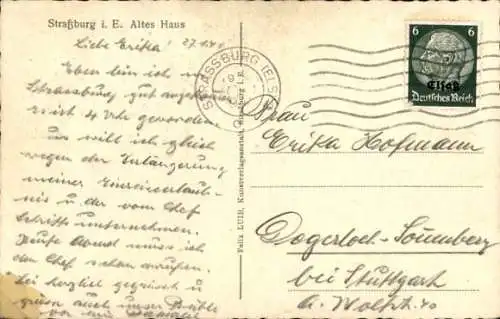 Straßburg i. E. Altes Haus
Liebe Erika! 27.1.41
Eben bin ich in
Strassburg gut
es ist 4 Uhr geworden
will ich gleich
wegen der Verlängerung
meiner Einreiseerlaub-
nis u. der vom Chef
Schritte unternehmen.
Heute Abend muss ich
den Chef schon anrufen.
Sei herzlich gegrüsst u.
grüsse auch unser
von
STRASSBURG (ELS)
6 6
Elsaß
Deutsches Reich
Frau
Erika Hofmann
Degerloch-Sonnenberg
bei Stuttgart
Felix LUIB, Kunstverlagsanstalt, Straßburg i. E.